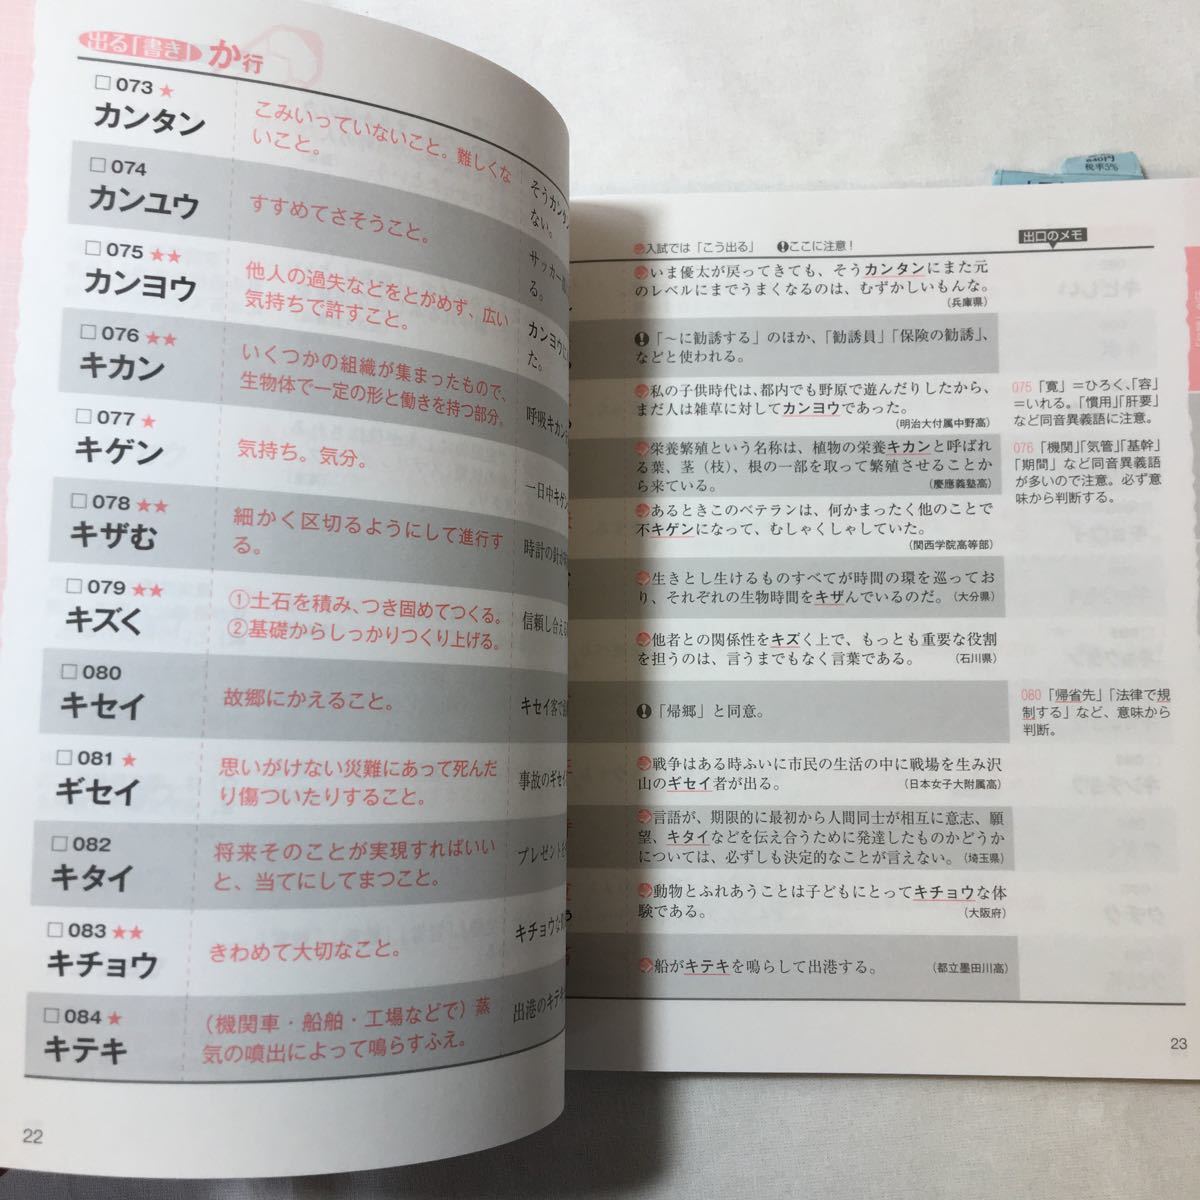 出る「書き」 か行
□073★
カンタン
こみいっていないこと。難しくな
いこと。
そうカンタン
ない。
□074
カンユウ
すすめてさそうこと。
サッカー
る。
□075★★
カンヨウ
他人の過失などをとがめず、広い
気持ちで許すこと。
カンヨウ
た。
□076★★
キカン
いくつかの組織が集まったもので、
生物体で一定の形と働きを持つ部分。
呼吸キカン
□077★
キゲン
気持ち。気分。
一日中キゲン
□078★★
キザむ
細かく区切るようにして進行す
る。
時計の針が
□079★★
キズく
①土石を積み、つき固めてつくる。
②基礎からしっかりつくり上げる。
信頼し合える
□080
キセイ
故郷にかえること。
キセイ客で
□081★
ギセイ
思いがけない災難にあって死んだ
り傷ついたりすること。
事故のギセイ
□082
キタイ
将来そのことが実現すればいい
と、当てにしてまつこと。
プレゼントを
□083★★
キチョウ
きわめて大切なこと。
キチョウな
□084★
キテキ
(機関車・船舶・工場などで)蒸
気の噴出によって鳴らすふえ。
出港のキテキ
22
840円
税率5%
入試では「こう出る」 ❗ここに注意！
出口のメモ
いま優太が戻ってきても、そうカンタンにまた元
のレベルにまでうまくなるのは、むずかしいもんな。
(兵庫県)
❗「～に勧誘する」のほか、「勧誘員」「保険の勧誘」、
などと使われる。
私の子供時代は、都内でも野原で遊んだりしたから、
まだ人は雑草に対してカンヨウであった。
(明治大付属中野高)
075「寛」＝ひろく、「容」
＝いれる。「慣用」「肝要」
など同音異義語に注意。
栄養繁殖という名称は、植物の栄養キカンと呼ばれ
る葉、茎（枝）、根の一部を取って繁殖させることか
ら来ている。
(慶應義塾高)
076「機関」「気管」「基幹」
「期間」など同音異義語
が多いので注意。必ず意
味から判断する。
あるときこのベテランは、何かまったく他のことで
不キゲンになって、むしゃくしゃしていた。
(関西学院高等部)
生きとし生けるものすべてが時間の環を巡ってお
り、それぞれの生物時間をキザんでいるのだ。(大分県)
他者との関係性をキズく上で、もっとも重要な役割
を担うのは、言うまでもなく言葉である。 (石川県)
❗「帰郷」と同意。
080「帰省先」「法律で規
制する」など、意味から
判断。
戦争はある時ふいに市民の生活の中に戦場を生み沢
山のギセイ者が出る。 (日本女子大附属高)
言語が、期限的に最初から人間同士が相互に意志、願
望、キタイなどを伝え合うために発達したものかどうか
については、必ずしも決定的なことが言えない。(埼玉県)
動物とふれあうことは子どもにとってキチョウな体
験である。 (大阪府)
船がキテキを鳴らして出港する。 (都立墨田川高)
23